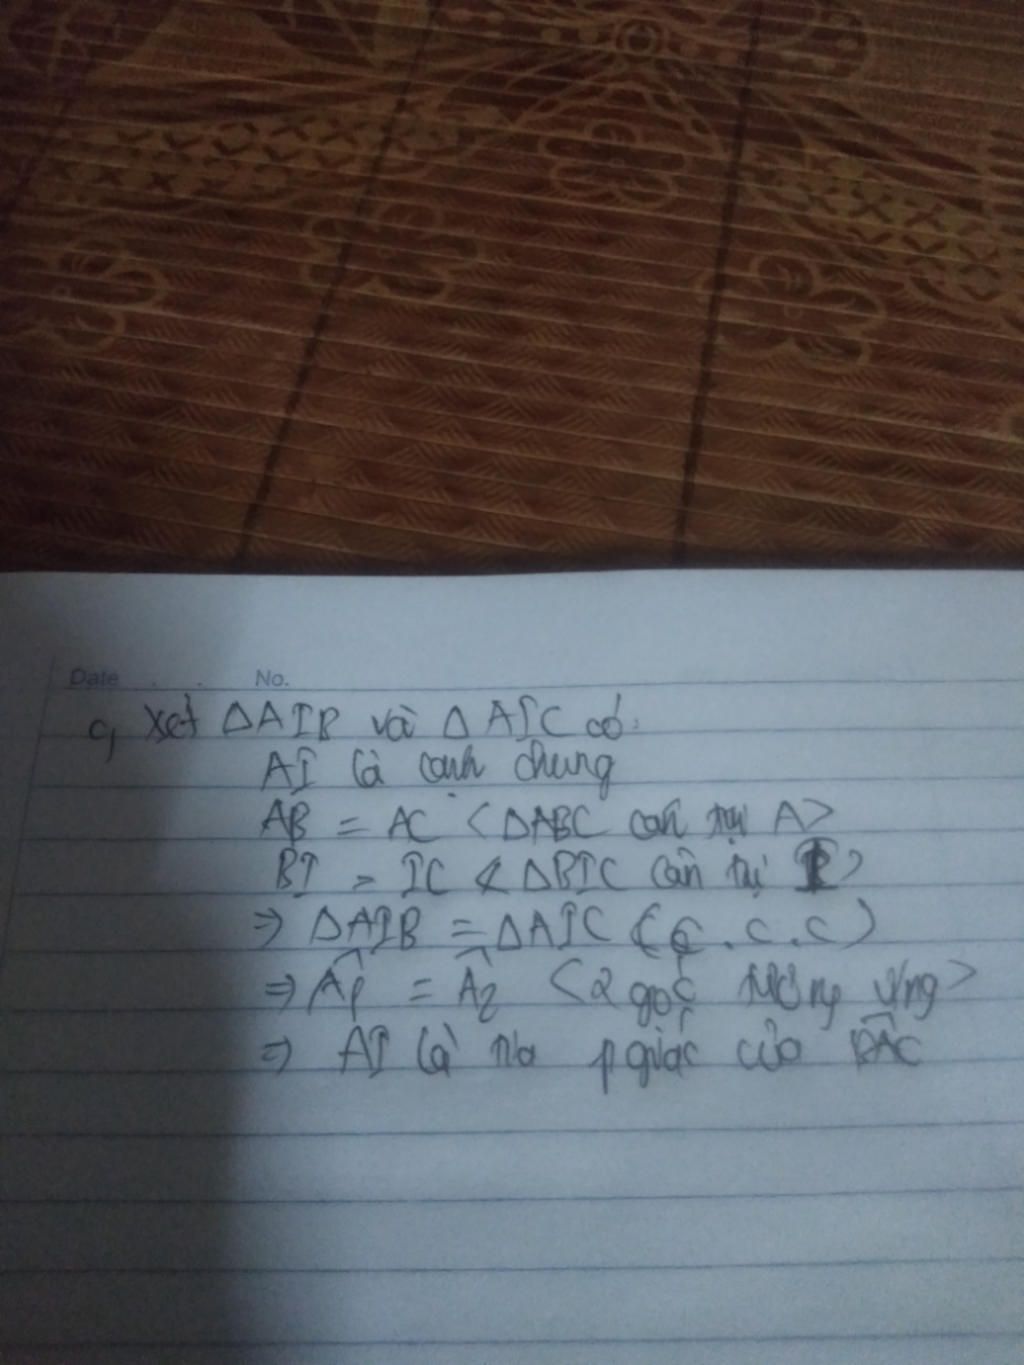 Date . . No.
c, Xét ΔAIB và ΔAIC có:
AI là cạnh chung
AB = AC <ΔABC cân tại A>
BI = IC <ΔBIC cân tại I>
=> ΔAIB = ΔAIC (c.c.c)
=> Â₁ = Â₂ <2 góc tương ứng>
=> AI là tia pgiác của BÂC